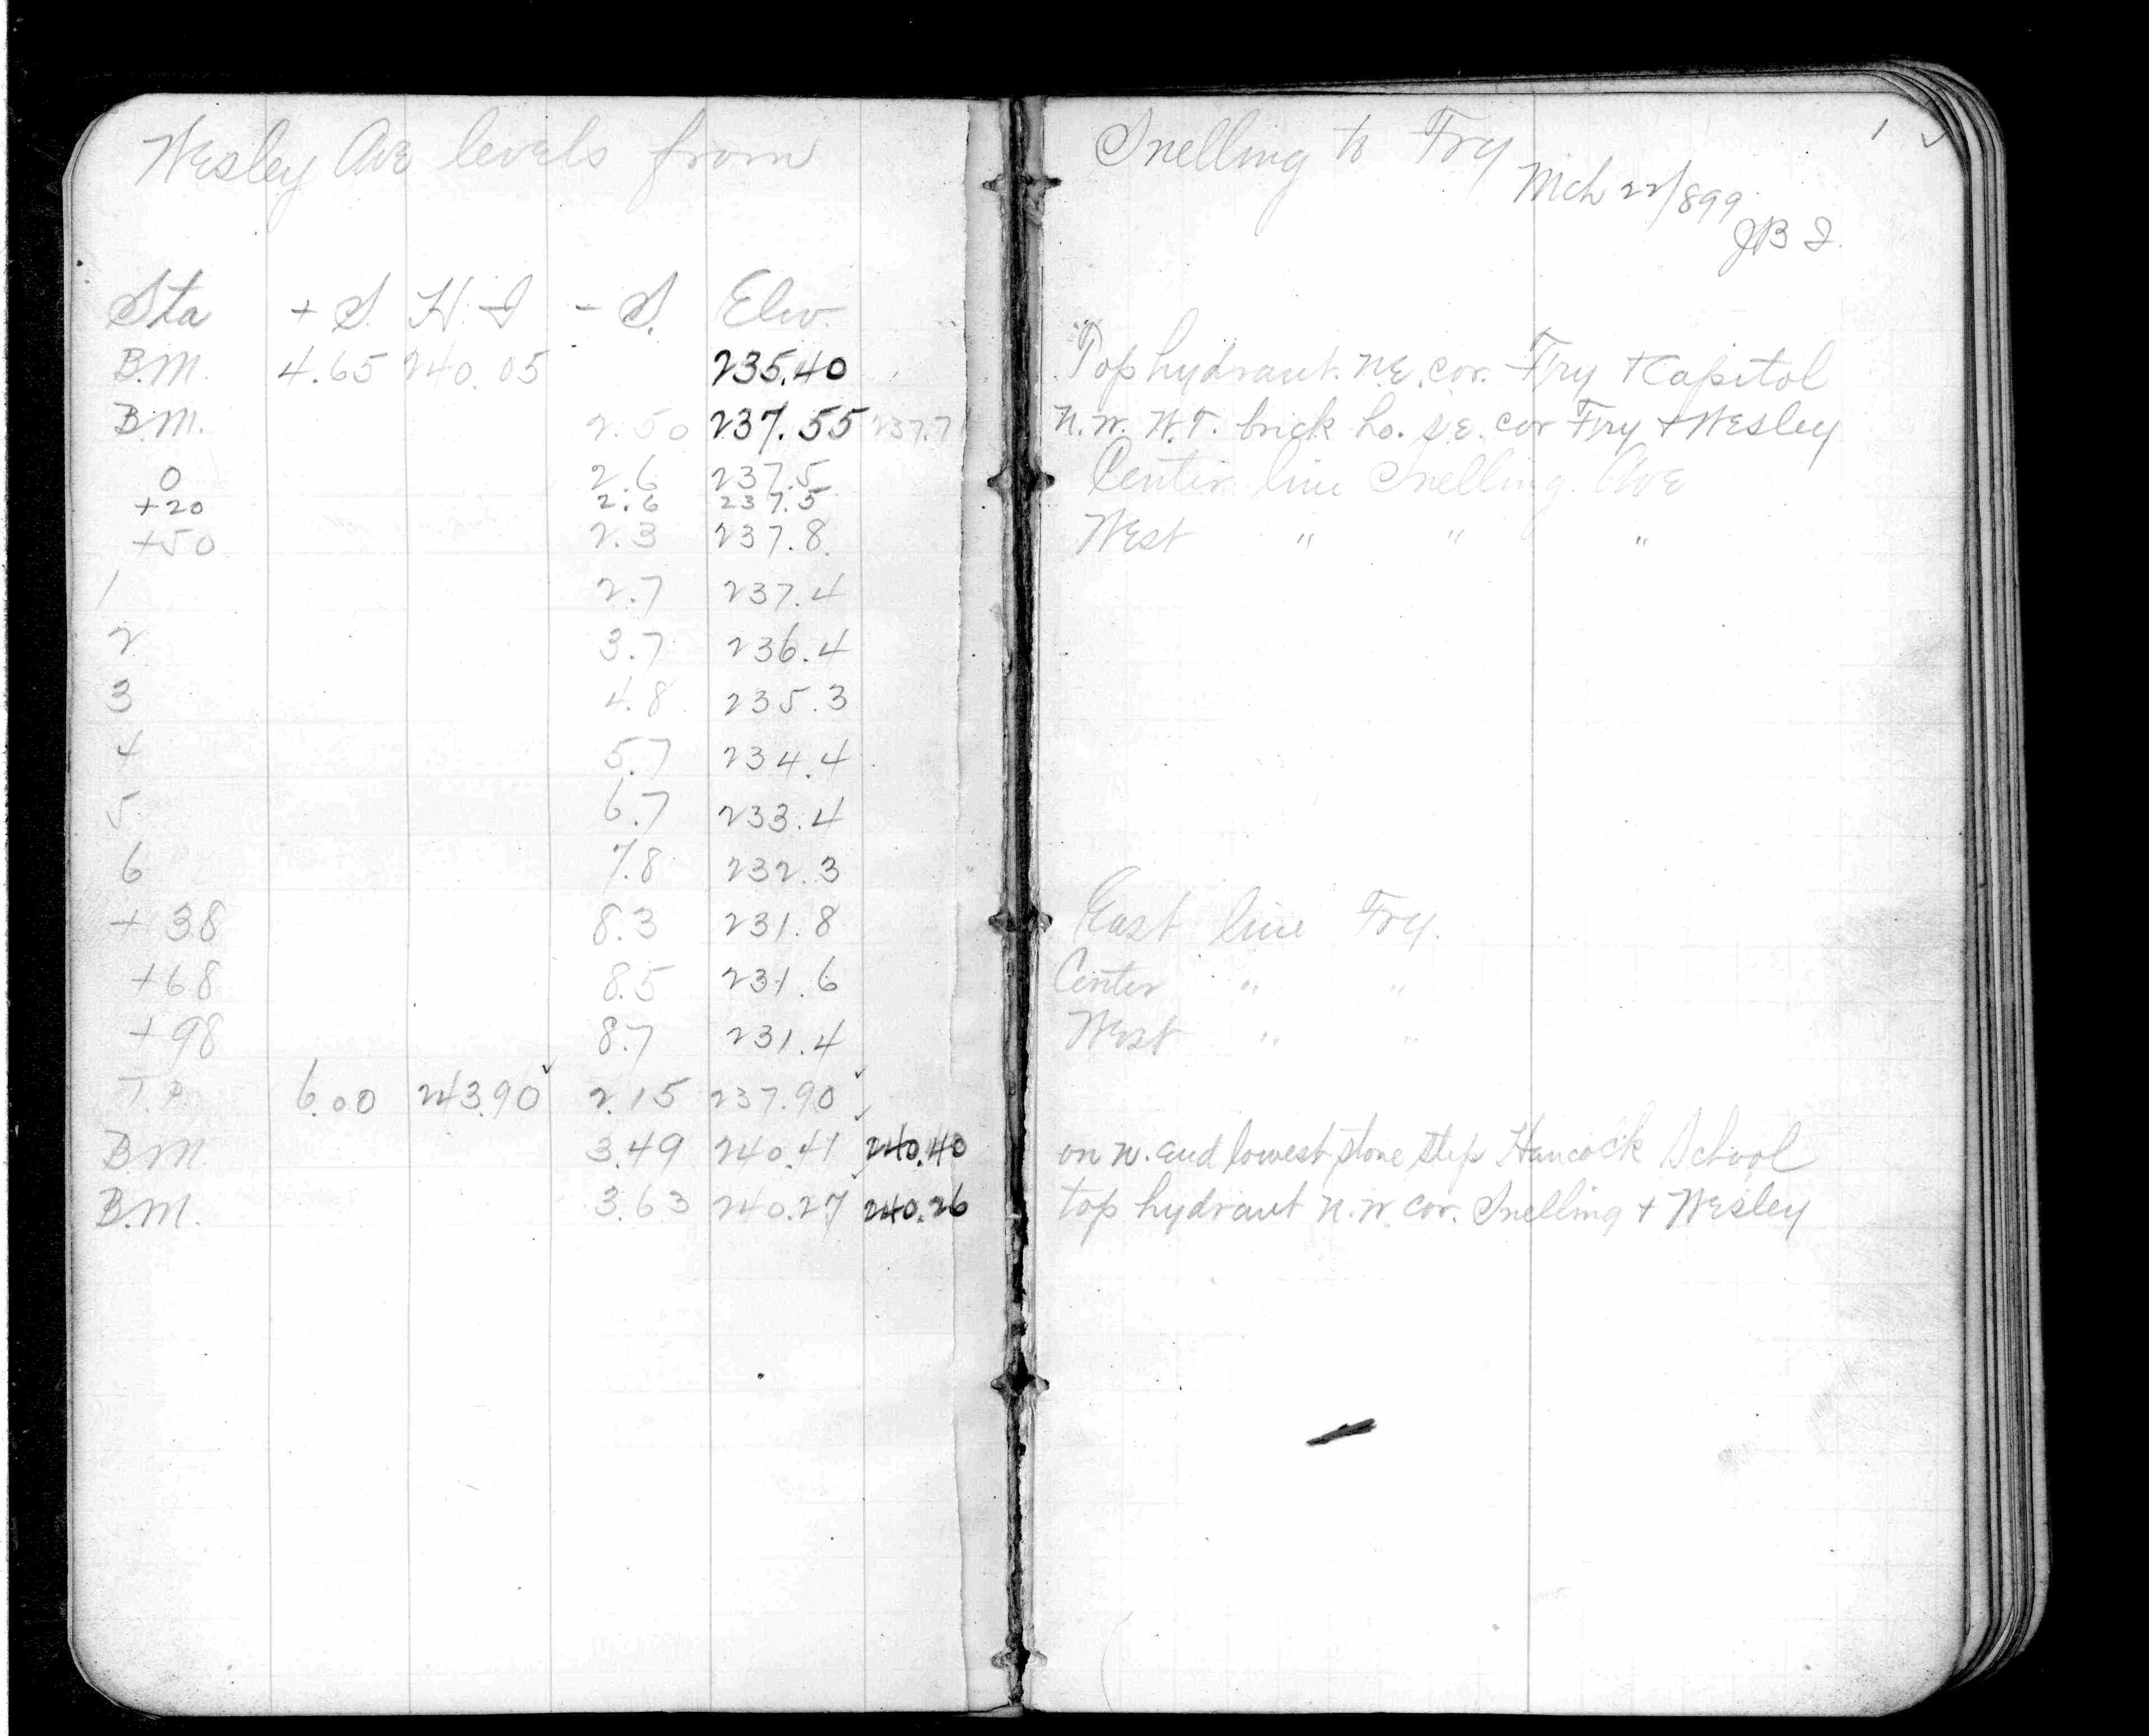 Wesley Ave levels from Snelling to Fry
1 ✓
Mch 22/899
JB I.
Sta + S. H. I - S. Elev.
B.M. 4.65 240.05 235.40 Top hydrant. N.E. cor. Fry + Capitol
B.M. 2.50 237.55 237.7 N.W. W.T. brick ho. S.E. cor Fry + Wesley
0 2.6 237.5 Center line Snelling Ave
+20 2.6 237.5
+50 2.3 237.8 West " " "
1 2.7 237.4
2 3.7 236.4
3 4.8 235.3
4 5.7 234.4
5 6.7 233.4
6 7.8 232.3
+ 38 8.3 231.8 East line Fry.
+68 8.5 231.6 Center " "
+98 8.7 231.4 West " "
T.P. 6.00 243.90 ✓ 2.15 237.90 ✓
B.M. 3.49 240.41 ✓ 240.40 on N. end lowest stone step Hancock School
B.M. 3.63 240.27 ✓ 240.26 top hydrant N.W. cor. Snelling + Wesley